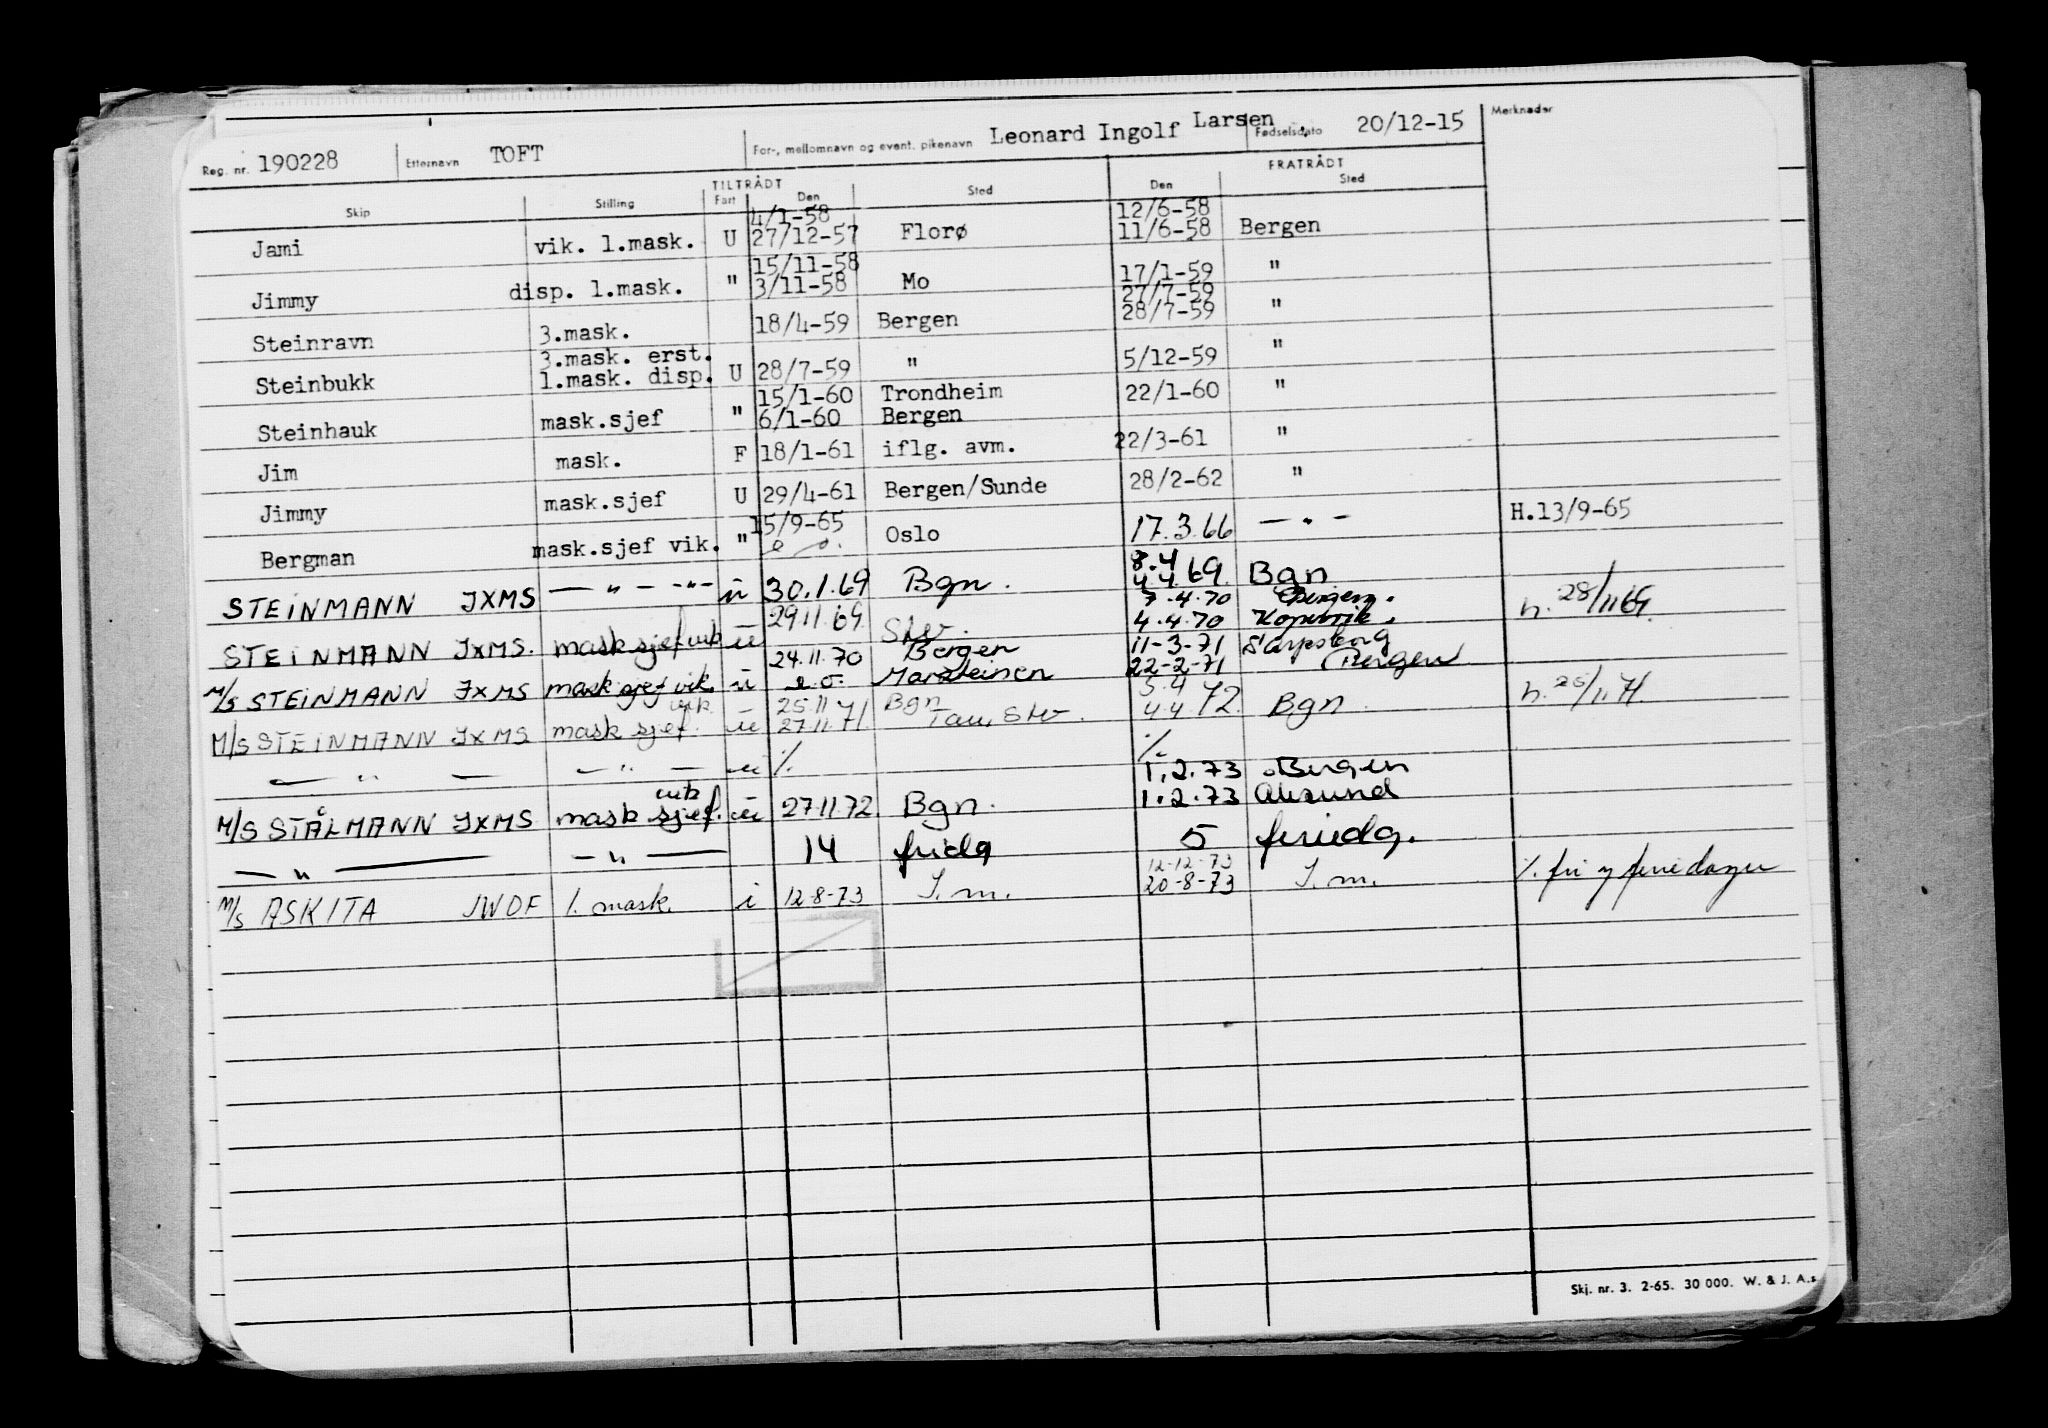 Reg. nr. 190228 Etternavn TOFT For-, mellomnavn og event. pikenavn Leonard Ingolf Larsen Fødselsdato 20/12-15 Merknader
TILTRÅDT FRATRÅDT
Skip Stilling Fart Den Sted Den Sted
4/1-58 12/6-58
Jami vik. 1.mask. U 27/12-57 Florø 11/6-58 Bergen
15/11-58
Jimmy disp. 1.mask. " 3/11-58 Mo 17/1-59 "
27/7-59
Steinravn 3.mask. 18/4-59 Bergen 28/7-59 "
3.mask. erst.
Steinbukk 1.mask. disp. U 28/7-59 " 5/12-59 "
15/1-60 Trondheim
Steinhauk mask.sjef " 6/1-60 Bergen 22/1-60 "
Jim mask. F 18/1-61 iflg. avm. 22/3-61 "
Jimmy mask.sjef U 29/4-61 Bergen/Sunde 28/2-62 "
15/9-65
Bergman mask.sjef vik. " e o. Oslo 17.3.66 — " — H.13/9-65
8.4
STEINMANN JXMS — " — -"- u 30.1.69 Bgn. 4.4.69. Bgn
7.4.70 Bergen.
STEINMANN JXMS. mask sjef vik u 29.11.69 Stv. 4.4.70 Kopervik. h. 28/11 69.
24.11.70 Bergen 11-3-71 Sarpsborg
M/S STEINMANN JXMS mask sjef vik. u e.o. Marsteinen 22-2-71 Bergen
vik 25.11 Bgn 5.4
M/S STEINMANN JXMS mask sjef. u 27.11.71. Tau, Stv. 4.4 72. Bgn. h. 25/11.71.
— " — — " — u ./. ./.
vik 1.2.73 Bergen
M/S STÅLMANN JXMS mask sjef. u 27.11.72. Bgn. 1.2.73 Ålesund
— " — — " — 14 fridg 5 feriedg.
12-12-73
M/S ASKITA JWOF 1. mask. i 12-8-73 S.m. 20-8-73 S.m. ./. fri og feriedager
Skj. nr. 3. 2-65. 30 000. W. & J. A.s